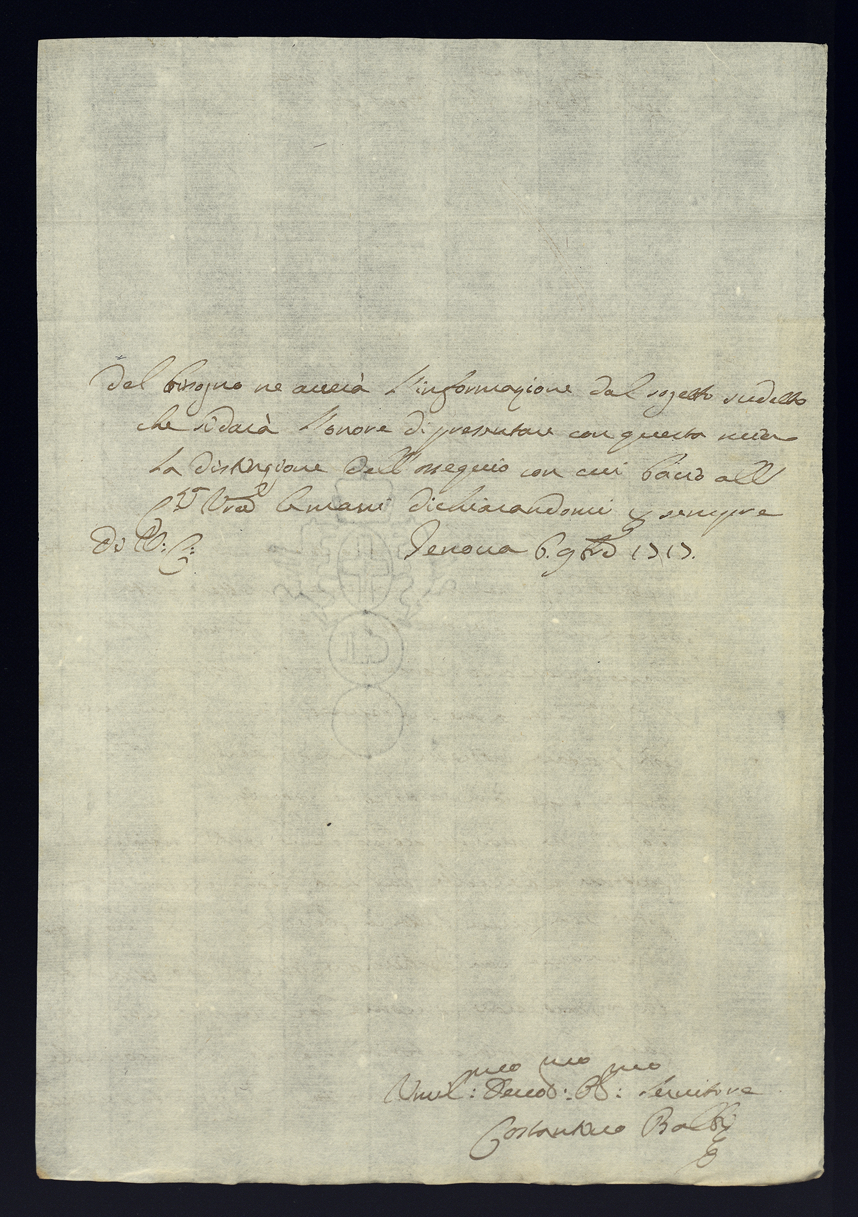 del bisogno ne auerà l'informazione dal sogetto sudetto
che si darà l'onore di presentare con questa
la distinzione dell'ossequio con cui bacio all
Vra le mani dichiarandomi p sempre
Di V: S: Genova 6. 9bre 1717.
Umil:mo Deuot:mo Obb:mo Seruitore
Costantino Balbi